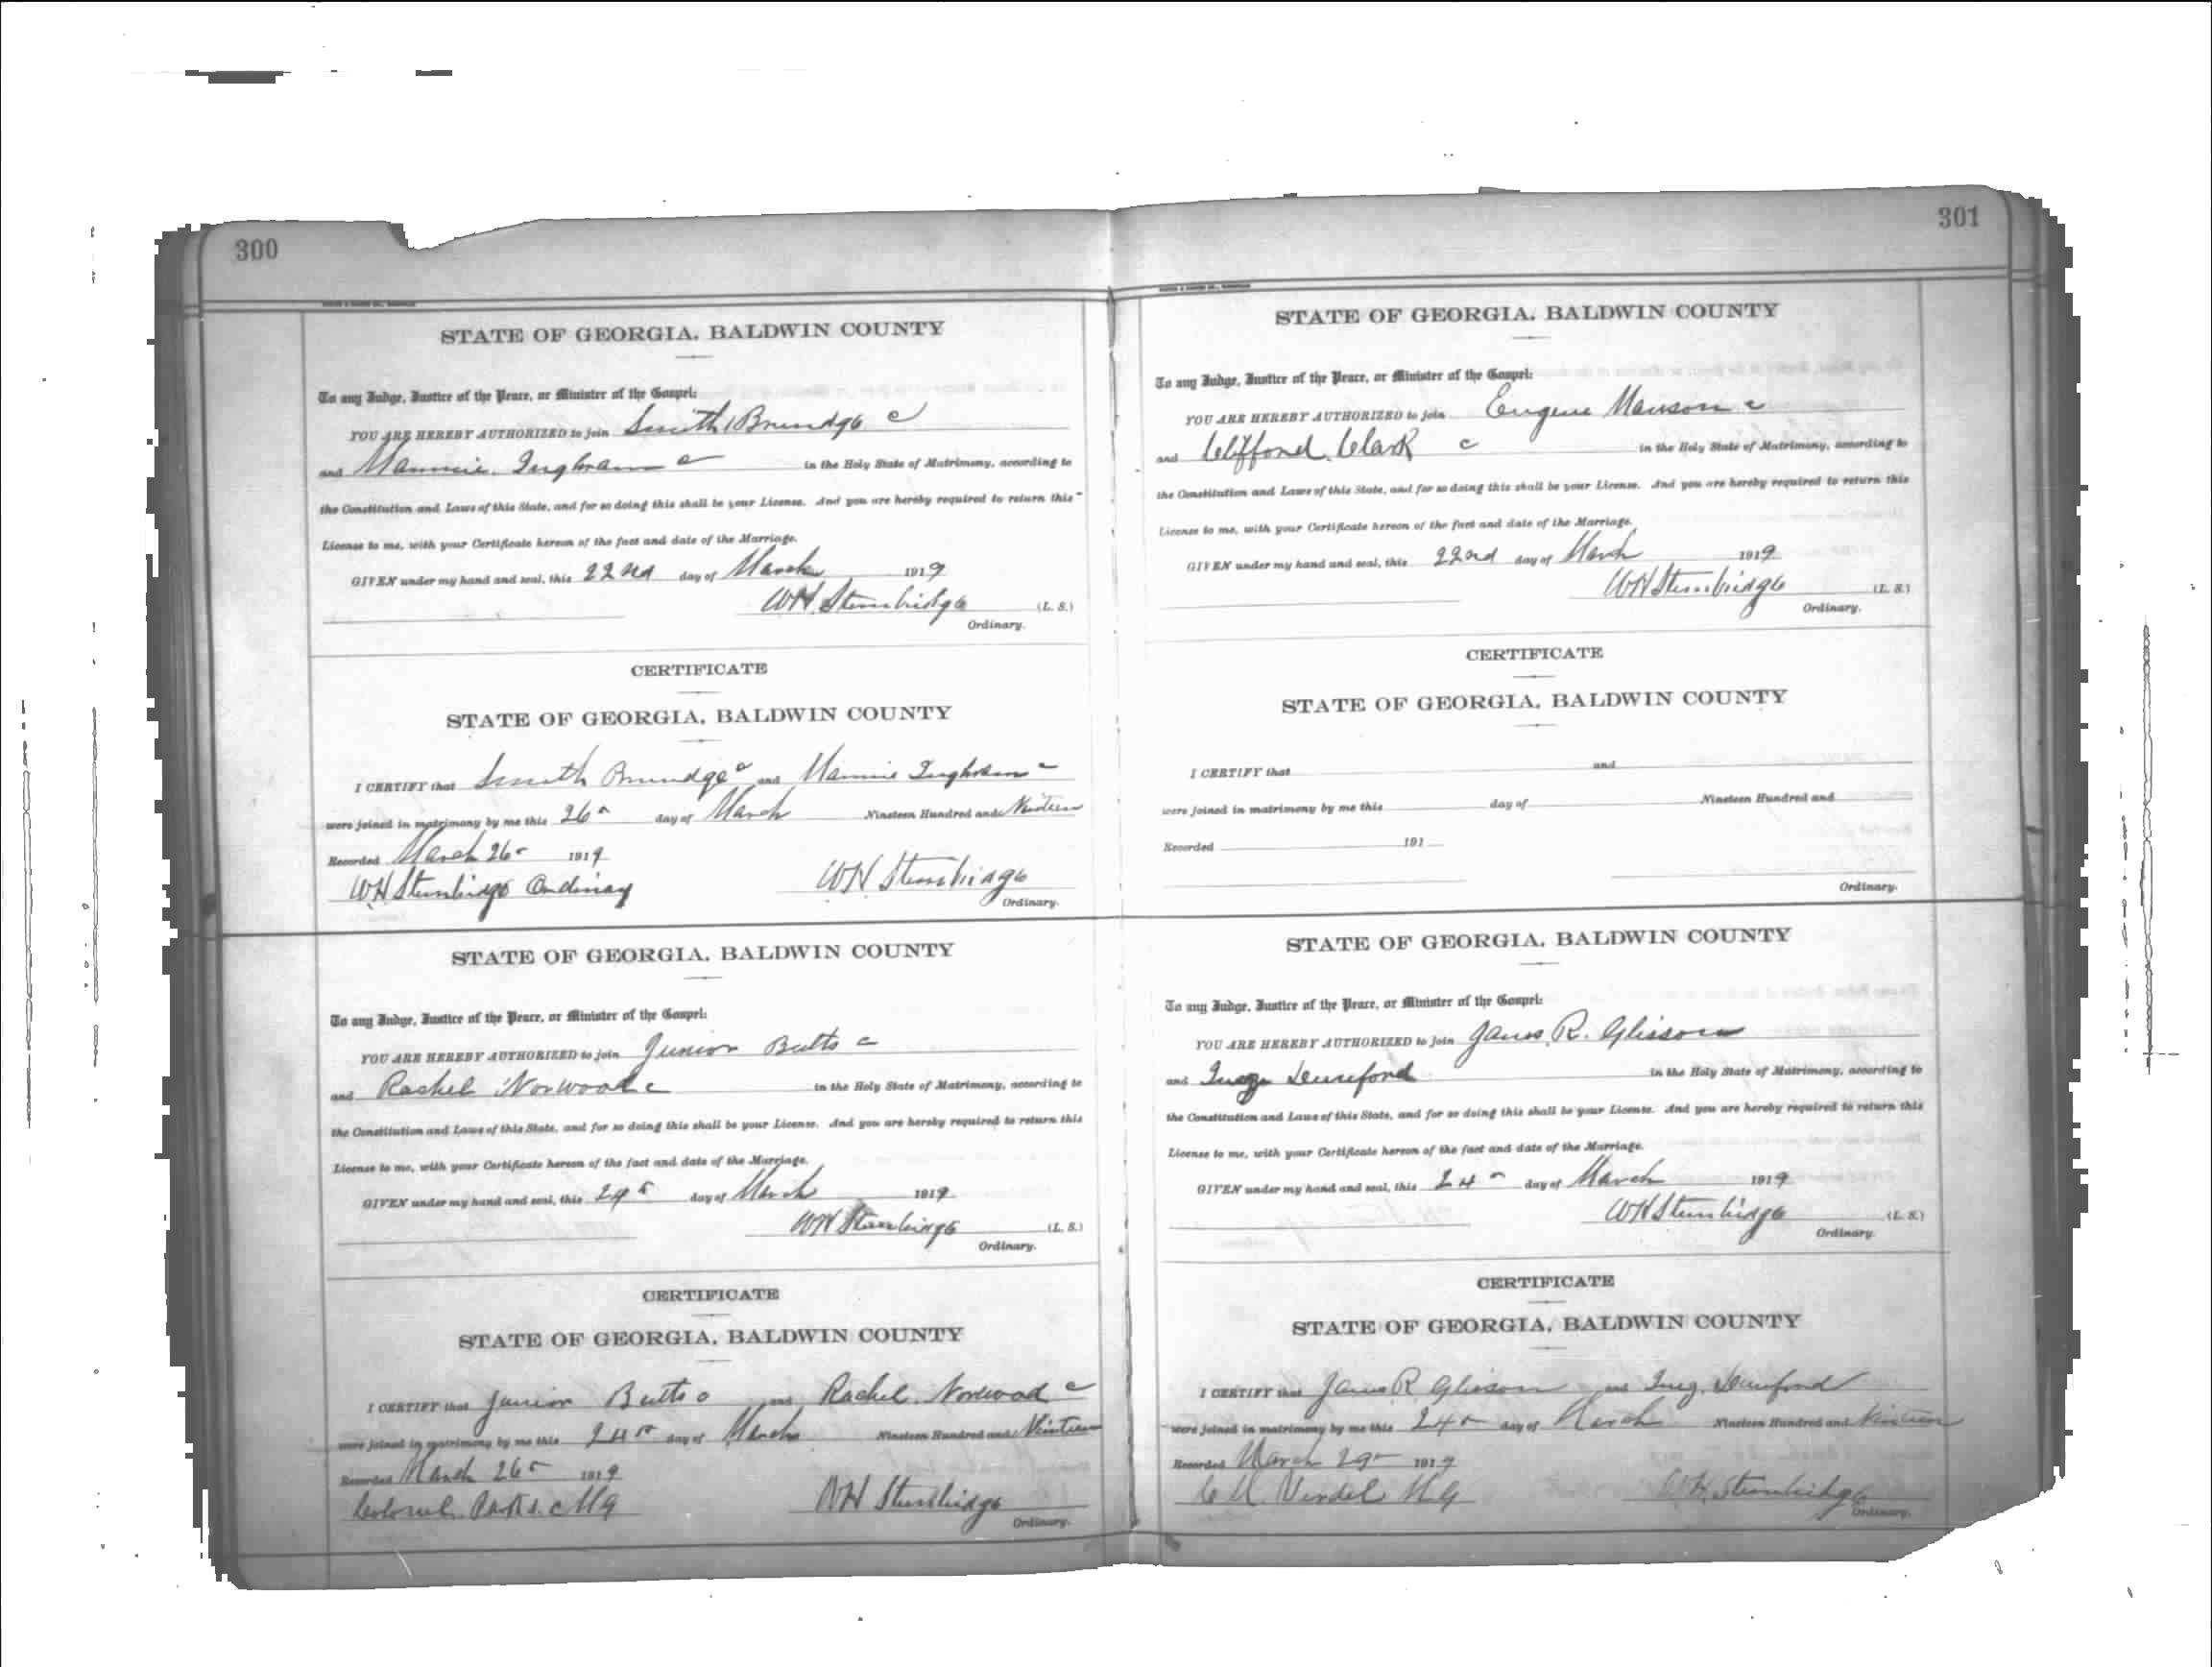 300
STATE OF GEORGIA, BALDWIN COUNTY
To any Judge, Justice of the Peace, or Minister of the Gospel:
YOU ARE HEREBY AUTHORIZED to join Smith Brundge c
and Mannie Inghram c in the Holy State of Matrimony, according to
the Constitution and Laws of this State, and for so doing this shall be your License. And you are hereby required to return this
License to me, with your Certificate hereon of the fact and date of the Marriage.
GIVEN under my hand and seal, this 22nd day of March 1919
WH Stembridge (L. S.)
Ordinary.
CERTIFICATE
STATE OF GEORGIA, BALDWIN COUNTY
I CERTIFY that Smith Brundge c and Mannie Inghram c
were joined in matrimony by me this 26 day of March Nineteen Hundred and Nineteen
Recorded March 26 1919
WH Stembridge Ordinary WH Stembridge
Ordinary.
STATE OF GEORGIA, BALDWIN COUNTY
To any Judge, Justice of the Peace, or Minister of the Gospel:
YOU ARE HEREBY AUTHORIZED to join Junior Butts c
and Rachel Norwood c in the Holy State of Matrimony, according to
the Constitution and Laws of this State, and for so doing this shall be your License. And you are hereby required to return this
License to me, with your Certificate hereon of the fact and date of the Marriage.
GIVEN under my hand and seal, this 24 day of March 1919
WH Stembridge (L. S.)
Ordinary.
CERTIFICATE
STATE OF GEORGIA, BALDWIN COUNTY
I CERTIFY that Junior Butts c and Rachel Norwood c
were joined in matrimony by me this 24 day of March Nineteen Hundred and Nineteen
Recorded March 26 1919
Colonel Parks c MG WH Stembridge
Ordinary.
301
STATE OF GEORGIA, BALDWIN COUNTY
To any Judge, Justice of the Peace, or Minister of the Gospel:
YOU ARE HEREBY AUTHORIZED to join Eugene Mauson c
and Clifford Clark c in the Holy State of Matrimony, according to
the Constitution and Laws of this State, and for so doing this shall be your License. And you are hereby required to return this
License to me, with your Certificate hereon of the fact and date of the Marriage.
GIVEN under my hand and seal, this 22nd day of March 1919
WH Stembridge (L. S.)
Ordinary.
CERTIFICATE
STATE OF GEORGIA, BALDWIN COUNTY
I CERTIFY that and
were joined in matrimony by me this day of Nineteen Hundred and
Recorded 191
Ordinary.
STATE OF GEORGIA, BALDWIN COUNTY
To any Judge, Justice of the Peace, or Minister of the Gospel:
YOU ARE HEREBY AUTHORIZED to join James R. Glisson
and Inez Dunford in the Holy State of Matrimony, according to
the Constitution and Laws of this State, and for so doing this shall be your License. And you are hereby required to return this
License to me, with your Certificate hereon of the fact and date of the Marriage.
GIVEN under my hand and seal, this 24 day of March 1919
WH Stembridge (L. S.)
Ordinary.
CERTIFICATE
STATE OF GEORGIA, BALDWIN COUNTY
I CERTIFY that James R Glisson and Inez Dunford
were joined in matrimony by me this 24 day of March Nineteen Hundred and Nineteen
Recorded March 29 1919
MG WH Stembridge
Ordinary.